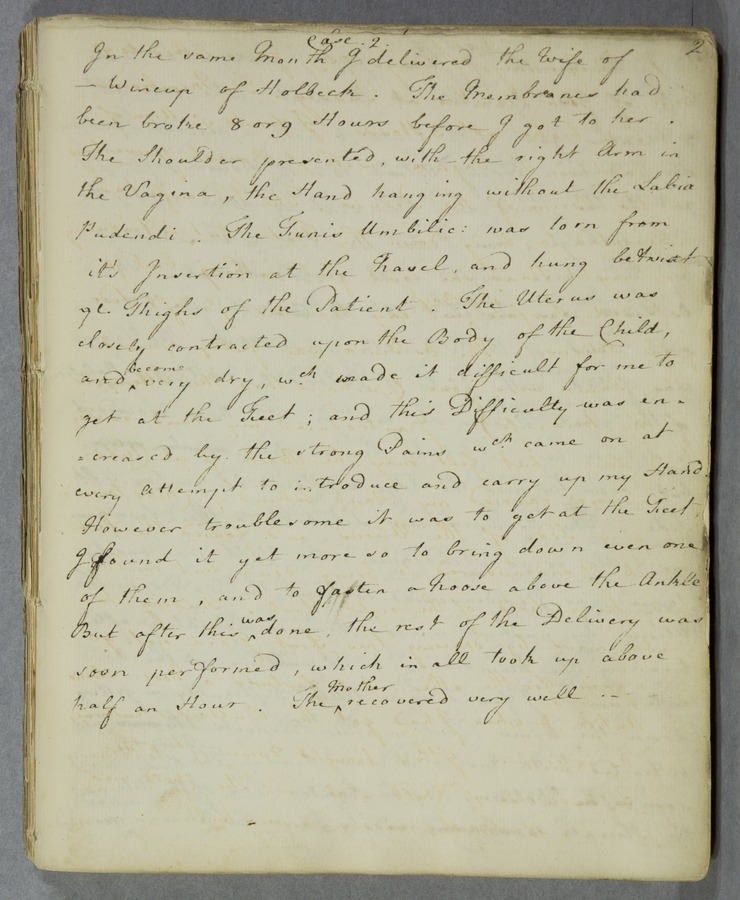 Case. 2.
2
In the same Month I delivered the Wife of
– Wineup of Holbeck. The Membranes had
been broke 8 or 9 Hours before I got to her.
The Shoulder presented, with the right Arm in
the Vagina, the Hand hanging without the Labia
Pudendi. The Funis Umbilic: was torn from
it's Insertion at the Navel, and hung betwixt
ye. Thighs of the Patient. The Uterus was
closely contracted upon the Body of the Child,
and become very dry, wch. made it difficult for me to
get at the Feet; and this Difficulty was en=
=creased by the strong Pains wch. came on at
every Attempt to introduce and carry up my Hand.
However troublesome it was to get at the Feet,
I found it yet more so to bring down even one
of them, and to fasten a Noose above the Ankle
But after this was done, the rest of the Delivery was
soon performed, which in all took up above
half an Hour. The Mother recovered very well.–